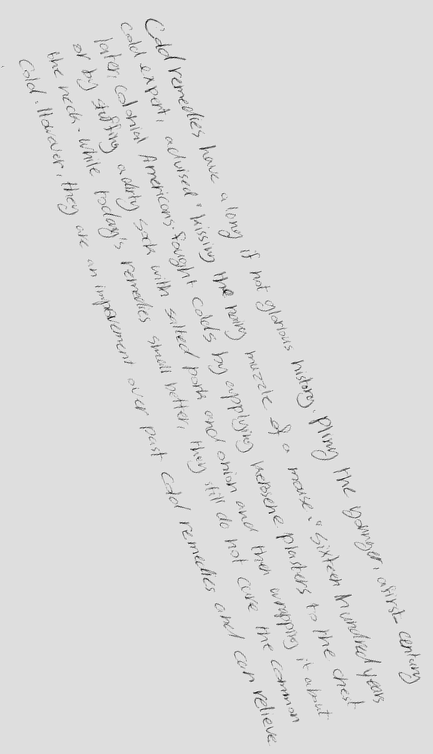 Cold remedies have a long if not glorious history. Pliny the younger, a first century
cold expert, advised "kissing the hairy muzzle of a mouse." Sixteen hundred years
later, Colonial Americans fought colds by applying kerosene plasters to the chest
or by stuffing a dirty sock with salted pork and onion and then wrapping it about
the neck. While today's remedies smell better, they still do not cure the common
cold. However, they are an improvement over past cold remedies and can relieve